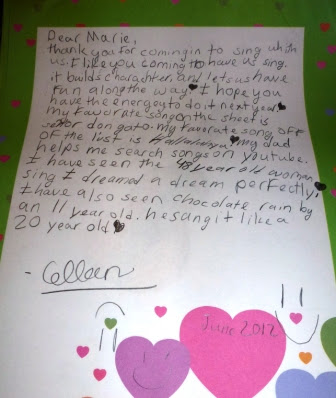 Dear Marie,
thank you for comingin to sing whith
us. I like you coming to have us sing.
it builds charachter, and lets us have
fun along the way. I hope you
have the energey to do it next year.
my favorate song on the sheet is
don gato. my favorate song off
of the list is Hallaluya my dad
helps me search songs on youtube.
I have seen the 48 year old woman
sing I dreamed a dream perfectly,
I have also seen chocolate rain by
an 11 year old. he sang it like a
20 year old
- Colleen
June 2012